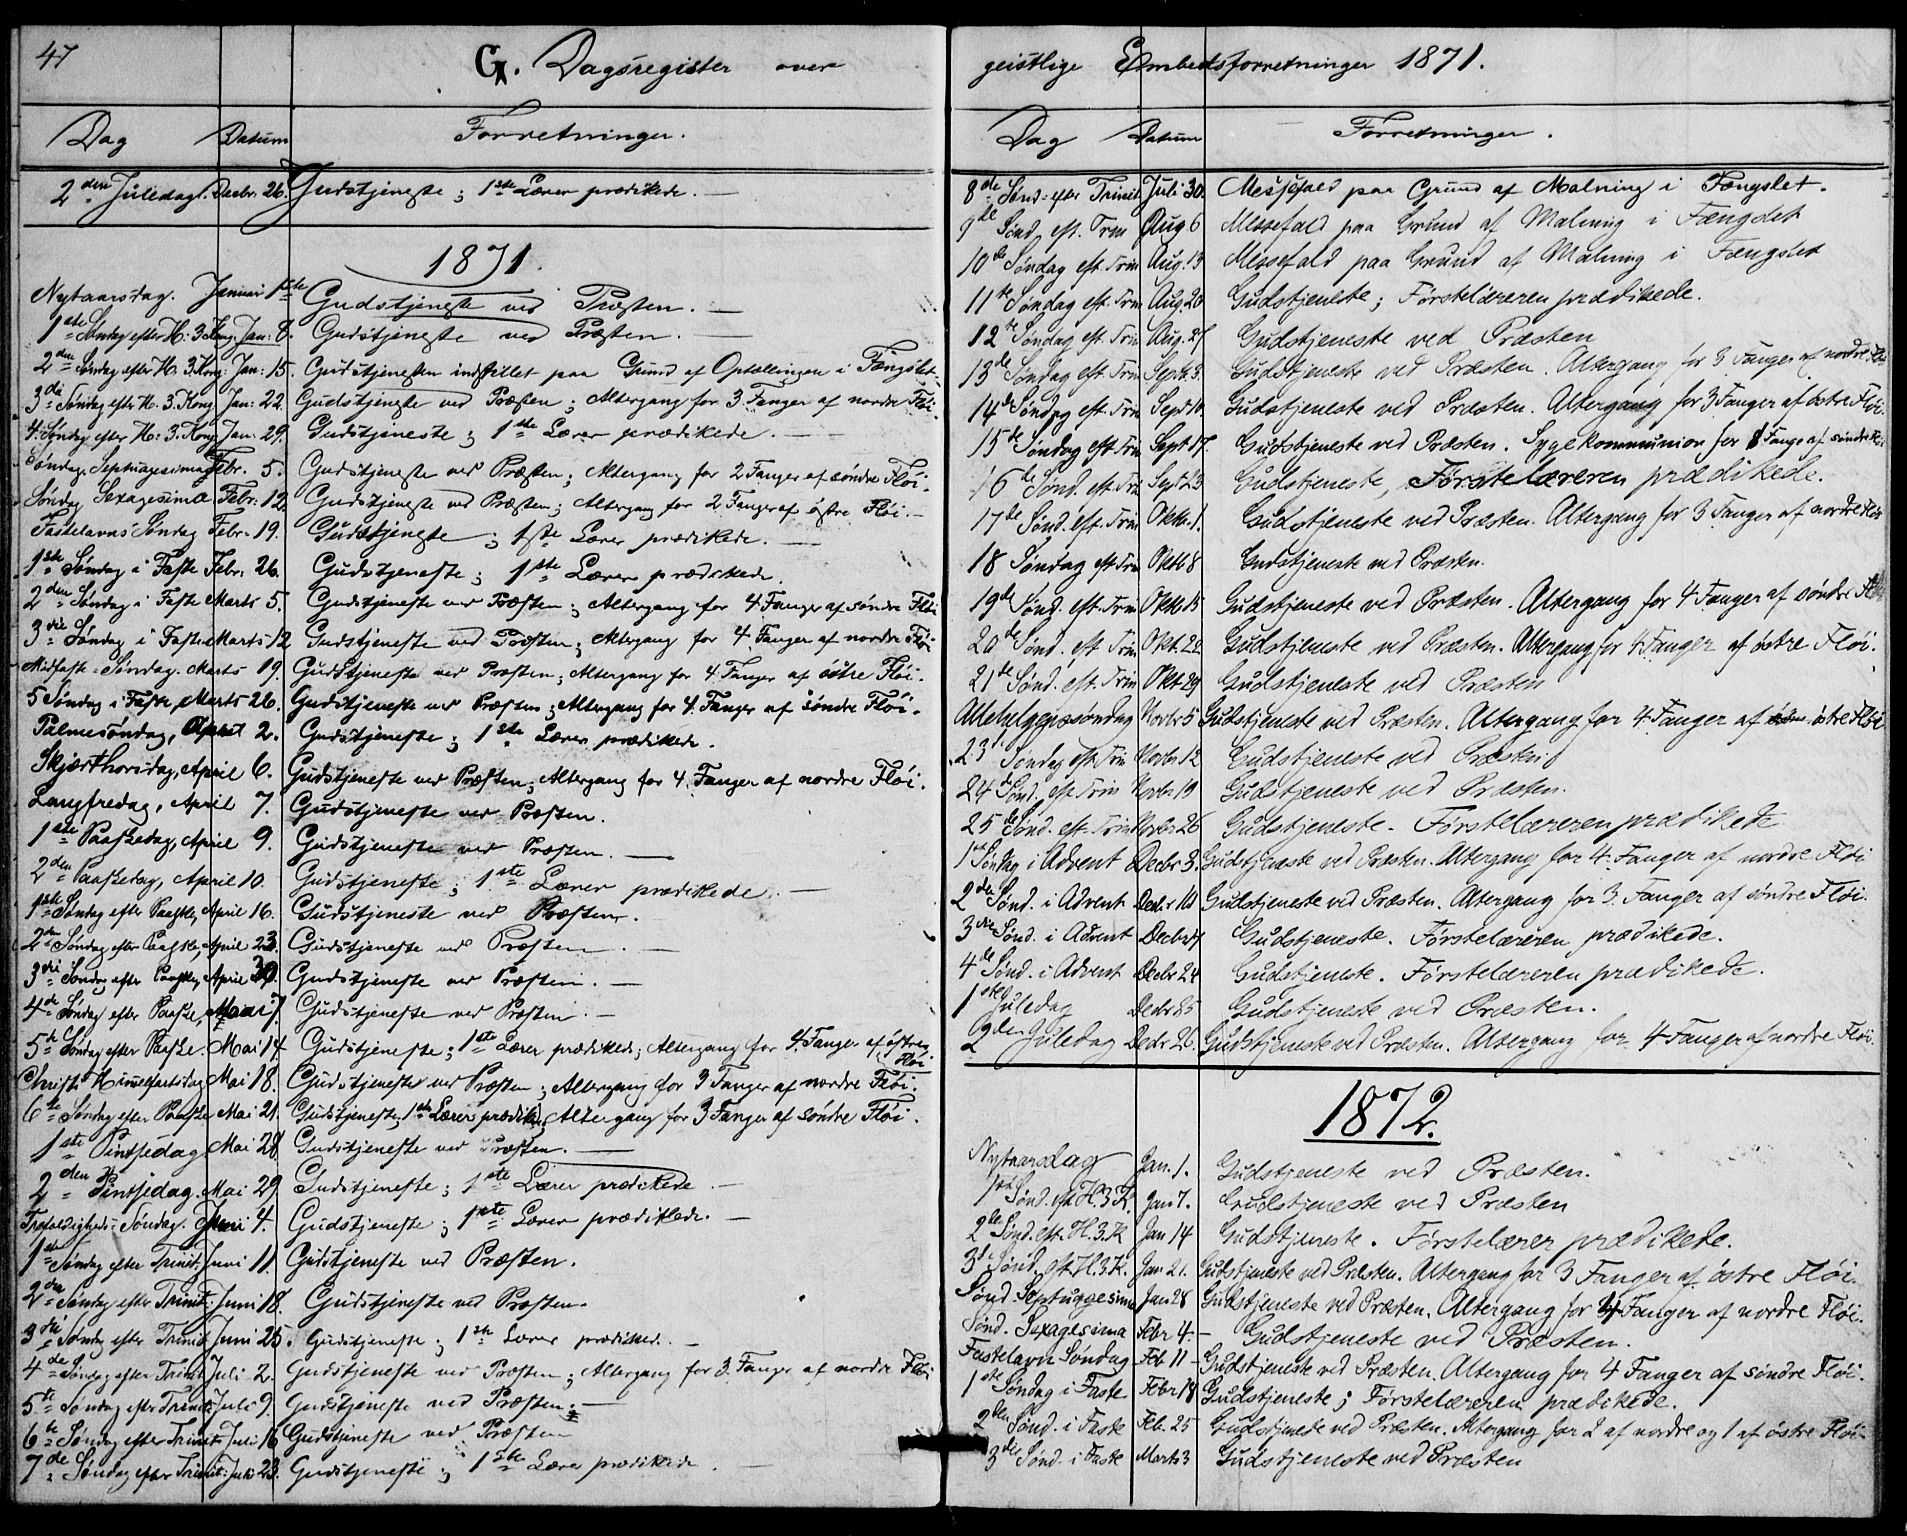 47
G. Dagsregister over
Dag Datum Forretninger.
2den Juledag. Decbr. 26. Gudstjeneste; 1ste Lærer prædikede. —
1871.
Nytaarsdag. Januar 1ste Gudstjeneste ved Præsten. —
1ste Søndag efter H. 3 Kong. Jan: 8. Gudstjeneste ved Præsten. —
2den Søndag efter H. 3 Kong: Jan: 15. Gudstjenesten indstillet paa Grund af Optellingen i Fængslet.
3die Søndag efter H. 3. Kong. Jan: 22. Gudstjeneste ved Præsten; Altergang for 3 Fanger af nordre Fløi.
4. Søndag efter H: 3. Kong. Jan: 29. Gudstjeneste; 1ste Lærer prædikede. —
Søndag Septuagesima Febr. 5. Gudstjeneste ved Præsten; Altergang for 2 Fanger af søndre Fløi.
Søndag Sexagesima Febr: 12. Gudstjeneste ved Præsten; Altergang for 2 Fanger af østre Fløi. —
Fastelavns Søndag Febr. 19. Gudstjeneste; 1ste Lærer prædikede. —
1ste Søndag i Faste Febr. 26. Gudstjeneste; 1ste Lærer prædikede.
2den Søndag i Faste Marts 5. Gudstjeneste ved Præsten; Altergang for 4 Fanger af søndre Fløi
3die Søndag i Faste Marts 12 Gudstjeneste ved Præsten; Altergang for 4 Fanger af nordre Fløi.
Midfaste-Søndag. Marts 19. Gudstjeneste ved Præsten; Altergang for 4 Fanger af østre Fløi.
5 Søndag i Faste, Marts 26. Gudstjeneste ved Præsten; Altergang for 4. Fanger af søndre Fløi.
Palmesøndag, April 2. Gudstjeneste; 1ste Lærer prædikede.
Skjærthorsdag, April 6. Gudstjeneste ved Præsten; Altergang for 4. Fanger af nordre Fløi.
Langfredag, April 7. Gudstjeneste ved Præsten.
1ste Paaskedag, April 9. Gudstjeneste ved Præsten. —
2den Paaskedag, April 10. Gudstjeneste; 1ste Lærer prædikede. —
1ste Søndag efter Paaske, April 16. Gudstjeneste ved Præsten.
2den Søndag efter Paaske, April 23. Gudstjeneste ved Præsten. —
3die Søndag efter Paaske, April 30. Gudstjeneste ved Præsten. —
4de Søndag efter Paaske, Mai 7. Gudstjeneste ved Præsten. —
5te Søndag efter Paaske. Mai 14 Gudstjeneste; 1ste Lærer prædikede; Altergang for 4. Fanger af østre
Fløi
Christi Himmelfartsdag Mai 18. Gudstjeneste ved Præsten; Altergang for 3 Fanger af nordre Fløi.
6te Søndag efter Paaske Mai 21. Gudstjeneste; 1ste Lærer prædik.; Altergang for 3 Fanger af søndre Fløi.
1ste Pintsedag Mai 28. Gudstjeneste ved Præsten. —
2den Pintsedag. Mai 29. Gudstjeneste; 1ste Lærer prædikede —
Trefoldigheds-Søndag. Juni 4. Gudstjeneste; 1ste Lærer prædikede. —
1ste Søndag efter Trinit. Juni 11. Gudstjeneste ved Præsten.
2den Søndag efter Trinit: Juni 18. Gudstjeneste ved Præsten.
3die Søndag efter Trinit. Juni 25. Gudstjeneste; 1ste Lærer prædikede. —
4de Søndag efter Trinit. Juli 2. Gudstjeneste ved Præsten; Altergang for 3. Fanger af nordre Fløi
5te Søndag efter Trinit. Juli 9. Gudstjeneste ved Præsten. —
6te Søndag efter Trinit. Juli 16 Gudstjeneste ved Præsten
7de Søndag efter Trinit: Juli 23. Gudstjeneste; 1ste Lærer prædikede —
geistlige Embedsforretninger 1871.
Dag Datum Forretninger.
8de Sønd. efter Trinit. Juli 30. Messefald paa Grund af Malning i Fængslet.
9de Sønd. eft. Trin Aug 6 Messefald paa Grund af Malning i Fængslet
10de Søndag eft. Trin Aug. 13 Messefald paa Grund af Malning i Fængslet
11te Søndag eft. Trin Aug. 20 Gudstjeneste; Førstelæreren prædikede.
12te Søndag eft. Trin Aug. 27 Gudstjeneste ved Præsten
13de Søndag eft. Trin Septb. 3. Gudstjeneste ved Præsten. Altergang for 3 Fanger af nordre Fløi
14de Søndag eft. Trin Sept 10 Gudstjeneste ved Præsten. Altergang for 3 Fanger af østre Fløi.
15de Søndag eft. Trin Sept 17. Gudstjeneste ved Præsten. Sygekommunion for 1 Fange af søndre Fl.
16de Sønd. eft. Trin Sept 23 Gudstjeneste, Førstelæreren prædikede.
17de Sønd. eft. Trin Oktb. 1. Gudstjeneste ved Præsten. Altergang for 3 Fanger af nordre Fløi
18 Søndag eft Trin Oktb 8 Gudstjeneste ved Præsten.
19de Sønd. eft. Trin Oktb. 15 Gudstjeneste ved Præsten. Altergang for 4 Fanger af søndre Fløi
20de Sønd. eft Trin Okt. 22 Gudstjeneste ved Præsten. Altergang for 4 Fanger af østre Fløi.
21de Sønd. eft. Trin Okt 29 Gudstjeneste ved Præsten
Allehelgenssøndag Novbr 5 Gudstjeneste ved Præsten. Altergang for 4 Fanger af østre Fløi
23 Søndag eft. Trin Novbr. 12 Gudstjeneste ved Præsten
24de Sønd. eft. Trin Novbr 19 Gudstjeneste ved Præsten.
25de Sønd. eft. Trin Novbr 26 Gudstjeneste. Førstelæreren prædikede
1ste Søndag i Advent Decbr 3. Gudstjeneste ved Præsten. Altergang for 4 Fanger af nordre Fløi
2den Sønd. i Advent Decbr 10 Gudstjeneste ved Præsten. Altergang for 3 Fanger af søndre Fløi.
3die Sønd. i Advent Decbr 17 Gudstjeneste. Førstelæreren prædikede.
4de Sønd. i Advent Decbr 24 Gudstjeneste. Førstelæreren prædikede.
1ste Juledag Decbr 25 Gudstjeneste ved Præsten.
2den Juledag Decbr 26. Gudstjeneste ved Præsten. Altergang for 4 Fanger af nordre Fløi.
1872.
Nytaarsdag Jan. 1. Gudstjeneste ved Præsten.
1ste Sønd. eft H. 3 K. Jan 7. Gudstjeneste ved Præsten
2den Sønd. eft. H. 3. K Jan 14 Gudstjeneste. Førstelærer prædikede.
3die Sønd. eft. H. 3. K. Jan. 21. Gudstjeneste ved Præsten. Altergang for 3 Fanger af østre Fløi.
Sønd. Septuagesima Jan 28 Gudstjeneste ved Præsten. Altergang for 4 Fanger af nordre Fløi.
Sønd. Sexagesima Febr 4. – Gudstjeneste ved Præsten.
Fastelavn Søndag Feb 11 – Gudstjeneste ved Præsten. Altergang for 4 Fanger af søndre Fløi.
1ste Søndag i Faste Febr 18 Gudstjeneste; Førstelæreren prædikede.
2den Sønd. i Faste Feb. 25 Gudstjeneste ved Præsten. Altergang for 2 af nordre og 1 af østre Fløi.
3die Sønd. i Faste Marts 3 Gudstjeneste ved Præsten